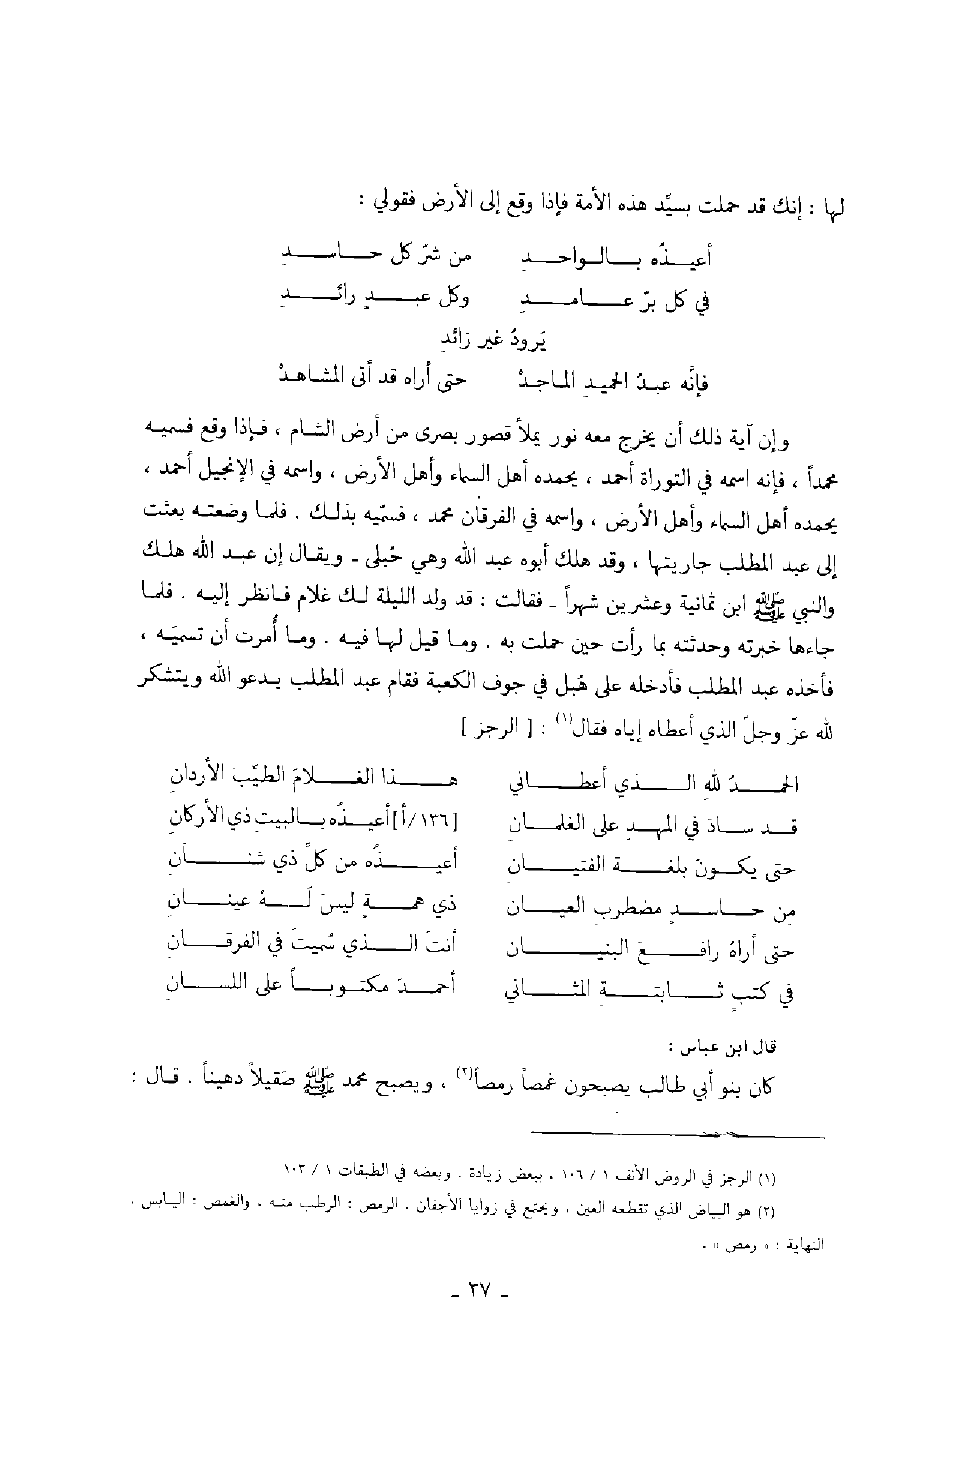 لها : إنك قد حملت بسيِّد هذه الأمة فإذا وقع إلى الأرض فقولي :
أعيـذه بـالـواحـدِ من شرّ كل حـاسـدِ
في كل برّ عـامـدِ وكل عبـدٍ رائـدِ
يَرودُ غير رَائدِ
فإنَّه عبدُ الحميدِ الماجدْ حتى أراه قد أتى المشاهدْ
وإن آية ذلك أن يخرج معه نور يملأ قصور بصرى من أرض الشام ، فإذا وقع فسميه
محمداً ، فإنه اسمه في التوراة أحمد ، يحمده أهل السماء وأهل الأرض ، واسمه في الإنجيل أحمد ،
يحمده أهل السماء وأهل الأرض ، واسمه في الفرقان محمد ، فسمّيه بذلك . فلما وضعته بعثت
إلى عبد المطلب جاريتها ، وقد هلك أبوه عبد الله وهي حُبلى ـ ويقال إن عبد الله هلك
والنبي ﷺ ابن ثمانية وعشرين شهراً ـ فقالت : قد ولد الليلة لك غلام فانظر إليه . فلما
جاءها خبرته وحدثته بما رأت حين حملت به . وما قيل لها فيه . وما أُمرت أن تسميَه ،
فأخذه عبد المطلب فأدخله على هُبل في جوف الكعبة فقام عبد المطلب يدعو الله ويتشكر
لله عزّ وجلّ الذي أعطاه إياه فقال(١) : [ الرجز ]
الحمـدُ لله الـذي أعطـاني هـذا الغـلامَ الطيِّبَ الأردانِ
قـد سـادَ في المهدِ على الغلمـانِ [١٣٦/أ] أعيـذُه بـالبيتِ ذي الأركانِ
حتى يكـونَ بلغـةَ الفتيـانِ أعيـذُه من كلِّ ذي شنـآنِ
من حـاسـدٍ مضطربِ العيـانِ ذي همـةٍ ليسَ لَـهُ عينـانِ
حتى أراهُ رافـعَ البنيـانِ أنتَ الـذي سُميتَ في الفرقـانِ
في كتبٍ ثـابتـةِ المثـاني أحمـدَ مكتـوبـاً على اللسـانِ
قال ابن عباس :
كان بنو أبي طالب يصبحون غمصاً رمصاً(٢) ، ويصبح محمد ﷺ صَقيلاً دهيناً . قال :
(١) الرجز في الروض الأنف ١ / ١٠٦ ، ببعض زيادة . وبعضه في الطبقات ١ / ١٠٣
(٢) هو البياض الذي تقطعه العين ، ويجتمع في زوايا الأجفان . الرمص : الرطب منه . والغمص : اليابس .
النهاية : « رمص » .
ـ ٣٧ ـ